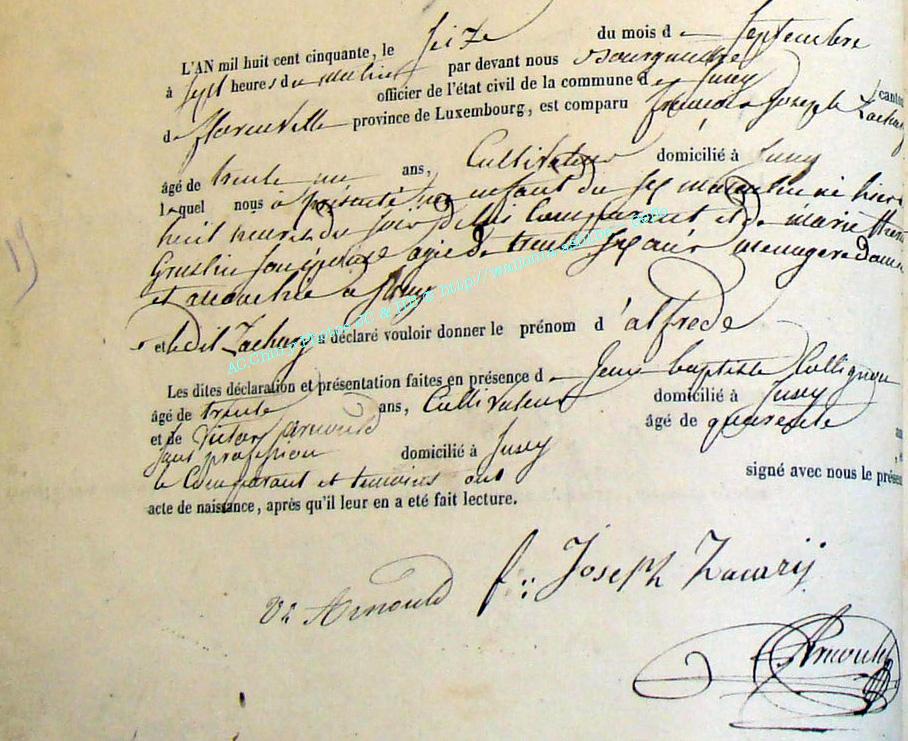 L'AN mil huit cent cinquante, le Seize du mois de Septembre
à Sept heures du matin par devant nous Bourguemestre
officier de l'état civil de la commune de Jusey canton
de florenville province de Luxembourg, est comparu françois Joseph Zachary
âgé de trente un ans, Cultivateur domicilié à Jusey
lequel nous a présenté un enfant du sex masculin né hier à
huit heures du soir de lui Comparant et de marie
Son épouse agée de trente Six ans menagere
et accouchée a Jusey
et ledit Zachary a déclaré vouloir donner le prénom d'alfrede
Les dites déclaration et présentation faites en présence de Jean baptiste Collignon
âgé de trente ans, Cultivateur domicilié à Jusey
et de Victor Arnould âgé de quarente
Sans profession domicilié à Jusey
le Comparant et temoins ont signé avec nous le présent
acte de naissance, après qu'il leur en a eté fait lecture.
Vr Arnould f: Joseph Zacarij
Arnould
AC Chiny Photos AC & DB @ http://wallonia-asbl.be